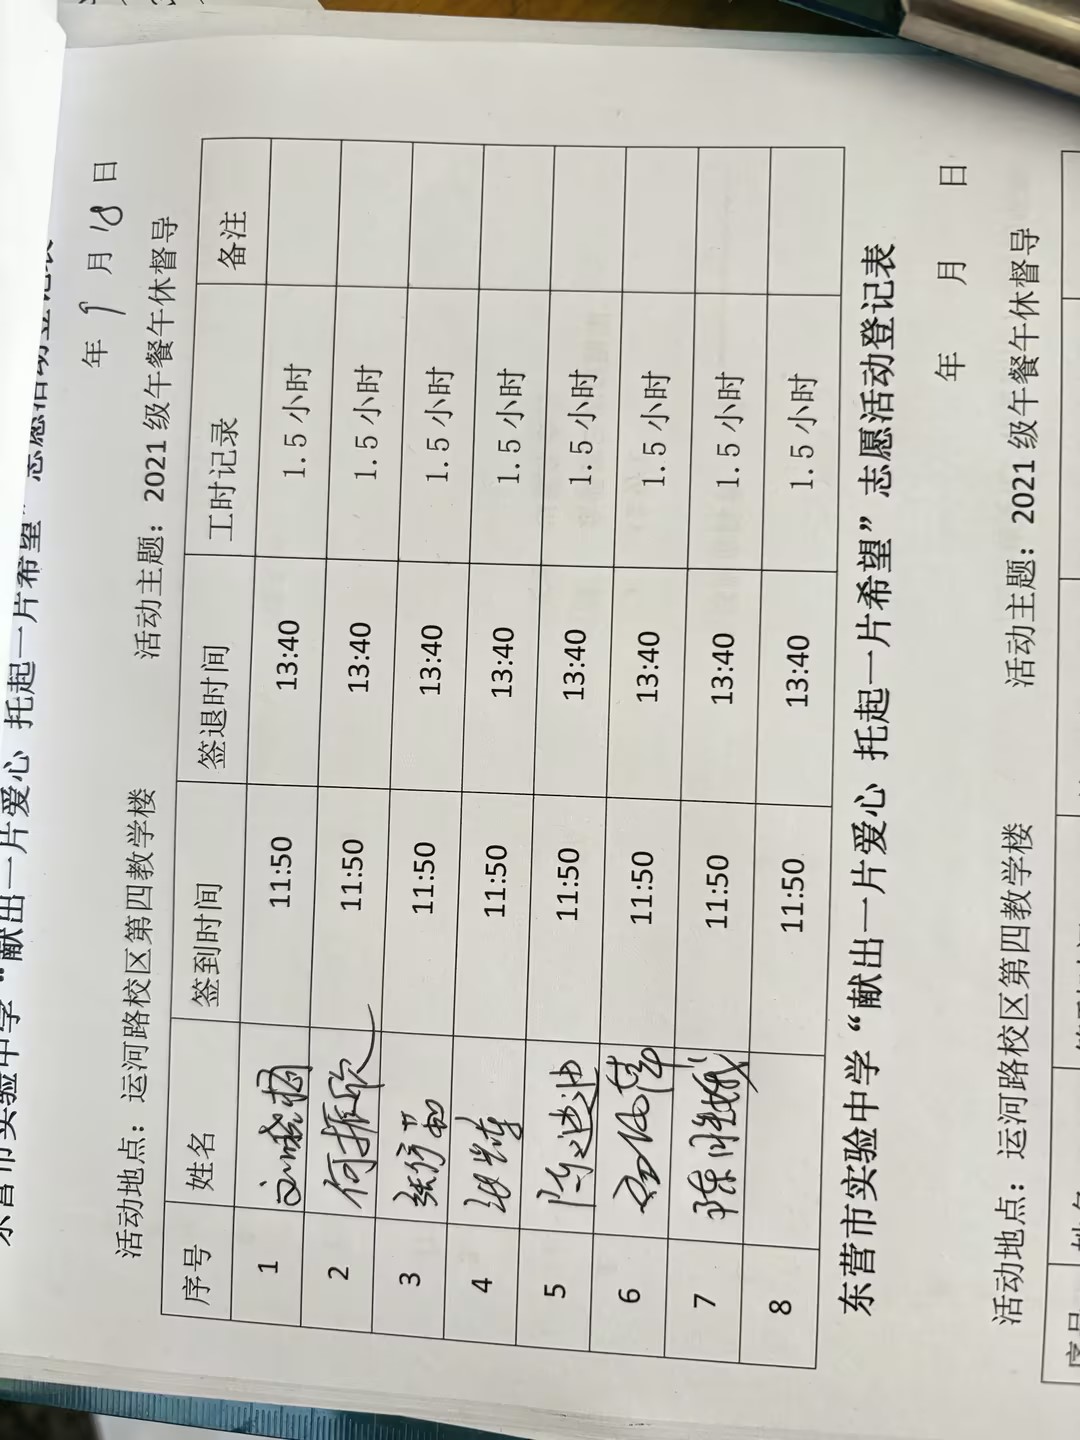 东营市实验中学“献出一片爱心 托起一片希望”志愿活动登记表
年 9 月 18 日
活动地点：运河路校区第四教学楼 活动主题：2021 级午餐午休督导
序号 姓名 签到时间 签退时间 工时记录 备注
1 11:50 13:40 1.5 小时
2 何振欣 11:50 13:40 1.5 小时
3 11:50 13:40 1.5 小时
4 11:50 13:40 1.5 小时
5 陈迪迪 11:50 13:40 1.5 小时
6 11:50 13:40 1.5 小时
7 11:50 13:40 1.5 小时
8 11:50 13:40 1.5 小时
东营市实验中学“献出一片爱心 托起一片希望”志愿活动登记表
年 月 日
活动地点：运河路校区第四教学楼 活动主题：2021 级午餐午休督导
序号 姓名